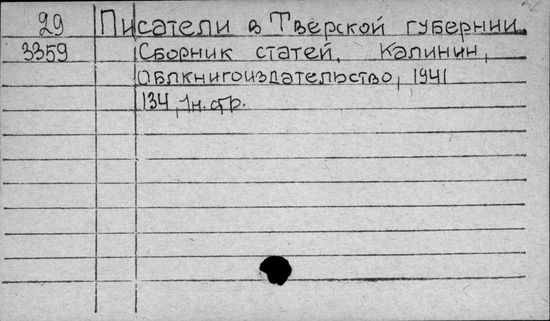 29 Писатели в Тверской губернии.
3359 Сборник статей. Калинин,
Облкнигоиздательство, 1941
134, 1н. стр.